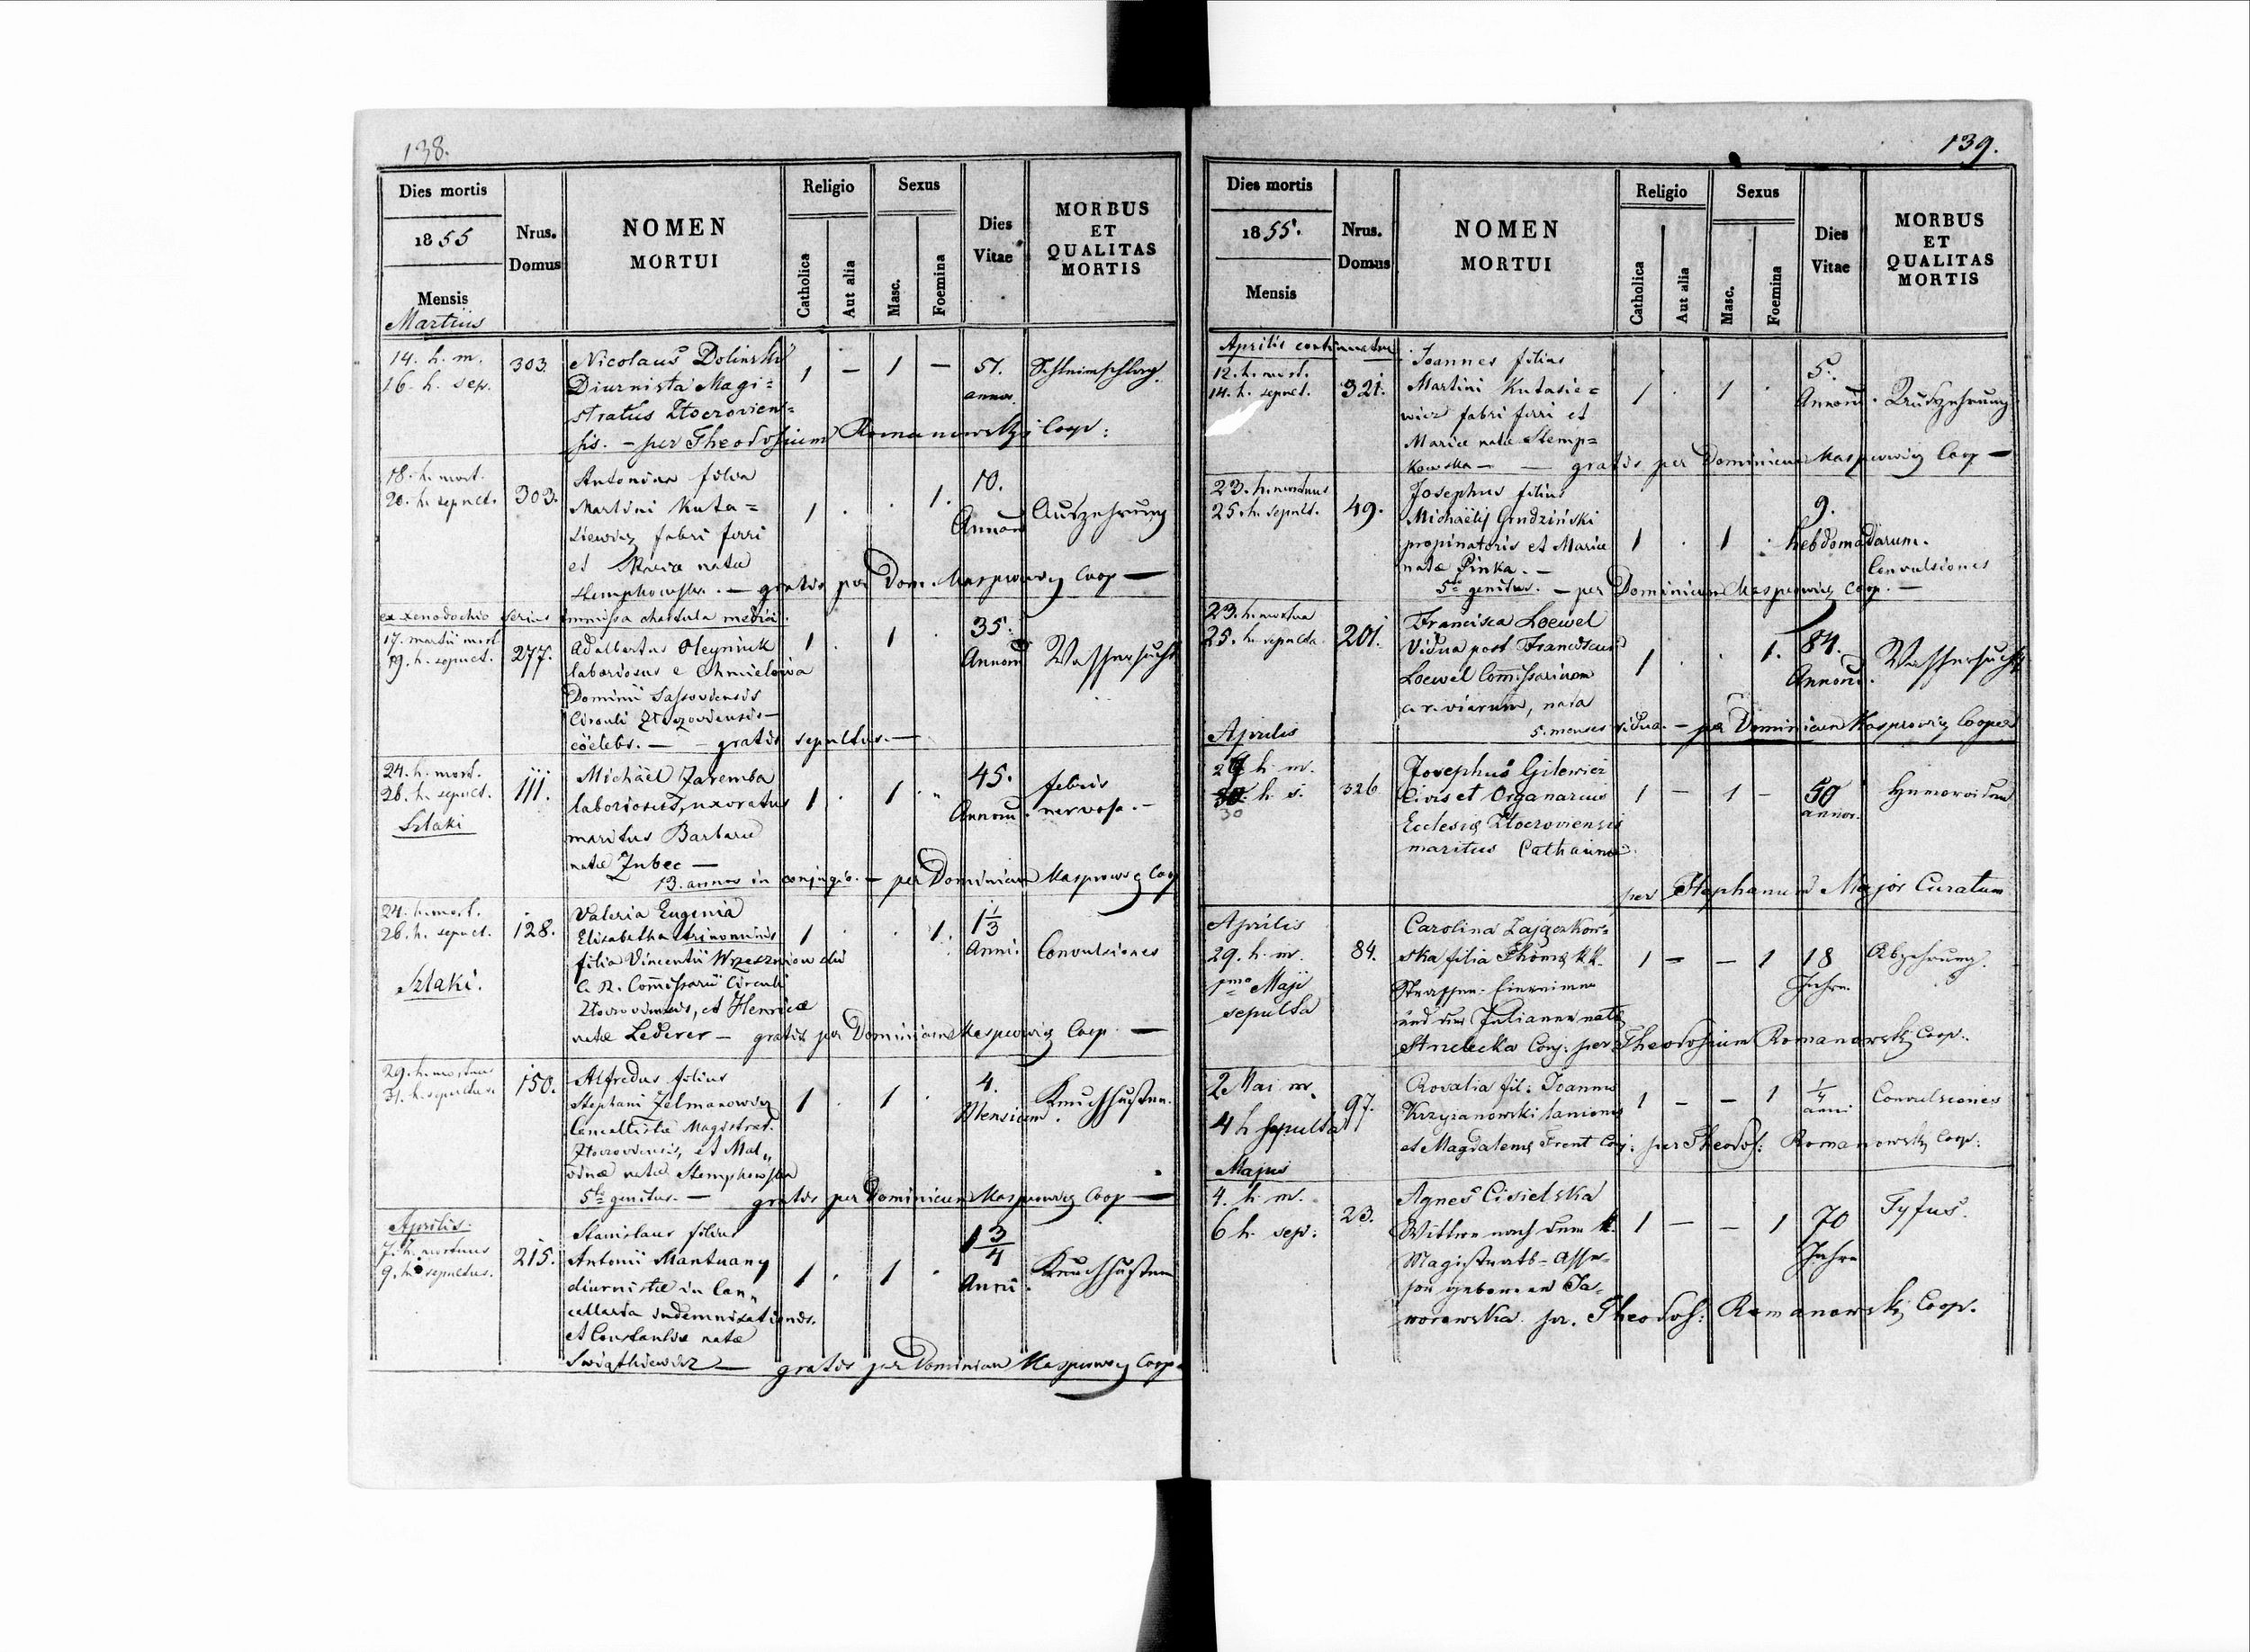 138.
Dies mortis
1855
Mensis
Martius
Nrus. Domus
NOMEN MORTUI
Religio
Catholica
Aut alia
Sexus
Masc.
Foemina
Dies Vitae
MORBUS ET QUALITAS MORTIS
14. h. m. 303. Nicolaus Dolinski 1 – 1 – 51.
16. h. sep. Diurnista Magi= annor.
stratus Złocrovien=
sis. – per Theodosium Romanowski Coop:
18. h. mort. 303. Antonina filia 1 . . 1. 10. Auszehrung
20. h. sepult. Martini Kuta= Annorū
siewicz fabri ferri
et Maria nata
Stempkowska. – gratis per Dom. Kasprowicz Coop –
ex xenodochio serius immissa chartula medici.
17. martii mort. 277. Adalbertus Oleyniuk 1 . 1 . 35. Wassersucht
19. h. sepult. laboriosus e Chmielowa Annorū
Dominii Sassoviensis
Circuli Złoczoviensis –
cöelebs. – – gratis sepultus. –
24. h. mort. 111. Michäel Zaremba 1 . 1 . 45. febris
26. h. sepult. laboriosus, uxoratus Annorū. nervosa. –
Szlaki maritus Barbarae
natae Zubec –
13. annos in conjugio. – per Dominicum Kasprowicz Coop
24. h. mort. 128. Valeria Eugenia 1 . . 1. 1 1/3 Convulsiones
26. h. sepult. Elisabetha trinominis Anni.
Szlaki. filia Vincentii
C. R. Com̄issarii Circuli
Złoczoviensis, et Henricae
natae Lederer – gratis per Dominicum Kasprowicz Coop –
29. h. mortuus 150. Alfredus filius 1 . 1 . 4. Keuchhusten.
31. h. sepultus. Stephani Zelmanowicz Mensium.
Cancellistae Magistrat.
Złoczoviensis, et Mal„
vinae natae Stempkowska
5te genitus. – gratis per Dominicum Kasprowicz Coop –
Aprilis.
7. h. mortuus 215. Stanislaus filius 1 . 1 . 1 3/4 Keuchhusten
9. h. sepultus. Antonii Mantuany Anni.
diurnistae in Can„
cellaria indemnisationis.
et Constantiae natae
Świątkiewicz – gratis per Dominicum Kasprowicz Coop.
139.
Dies mortis
1855.
Mensis
Nrus. Domus
NOMEN MORTUI
Religio
Catholica
Aut alia
Sexus
Masc.
Foemina
Dies Vitae
MORBUS ET QUALITAS MORTIS
Aprilis continuatur
12. h. mort. 321. Joannes filius 1 . 1 . 5. Auszehrung
14. h. sepult. Martini Kutasie= Annorū.
wicz fabri ferri et
Mariae natae Stemp=
kowska – – gratis per Dominicum Kasprowicz Coop –
23. h. mortuus 49. Josephus filius 1 . 1 . 9.
25. h. sepult. Michaëlis Grudziński hebdomadarum.
propinatoris et Mariae Convulsiones
natae Pinka. –
5te genitus. – per Dominicum Kasprowicz Coop. –
23. h. mortua 201. Francisca Loewel 1 . . 1. 84. Wassersucht
25. h. sepulta. Vidua post Franciscum Annorū.
Loewel Com̄issarium
c. r. viarum, nata
5. menses vidua – per Dominicum Kasprowicz Cooper
Aprilis
29 h. m. 326 Josephus Gilewicz 1 – 1 – 50
30 h. s. Civis et Organarius annor.
30 Ecclesiae Złocroviensis
maritus Catharinae.
per Stephanum Major Curatum
Aprilis Carolina Zajączkow= 1 – – 1 18 Abzehrung.
29. h. m. 84. ska filia Thomae k.k. Jahre.
1mo Maji Strassen- Einreimer
sepulta und der Julianna nata
Strzelecka Conj: per Theodosium Romanowski Coop.
2 Mai m. 97. Rosalia fil: Joannis 1 – – 1 1/4 Convulsiones
4 h. sepulta Krzyzanowski lanionis anni
et Magdalenae Frent Conj: per Theodos: Romanowski Coop:
Majus
4. h. m. 23. Agnes Cisielska 1 – – 1 70 Tyfus.
6 h. sep: Wittwe nach dem k. Jahre
Magistrats-Asse-
sor geborene Ja-
worowska per. Theodos: Romanowski Coop.